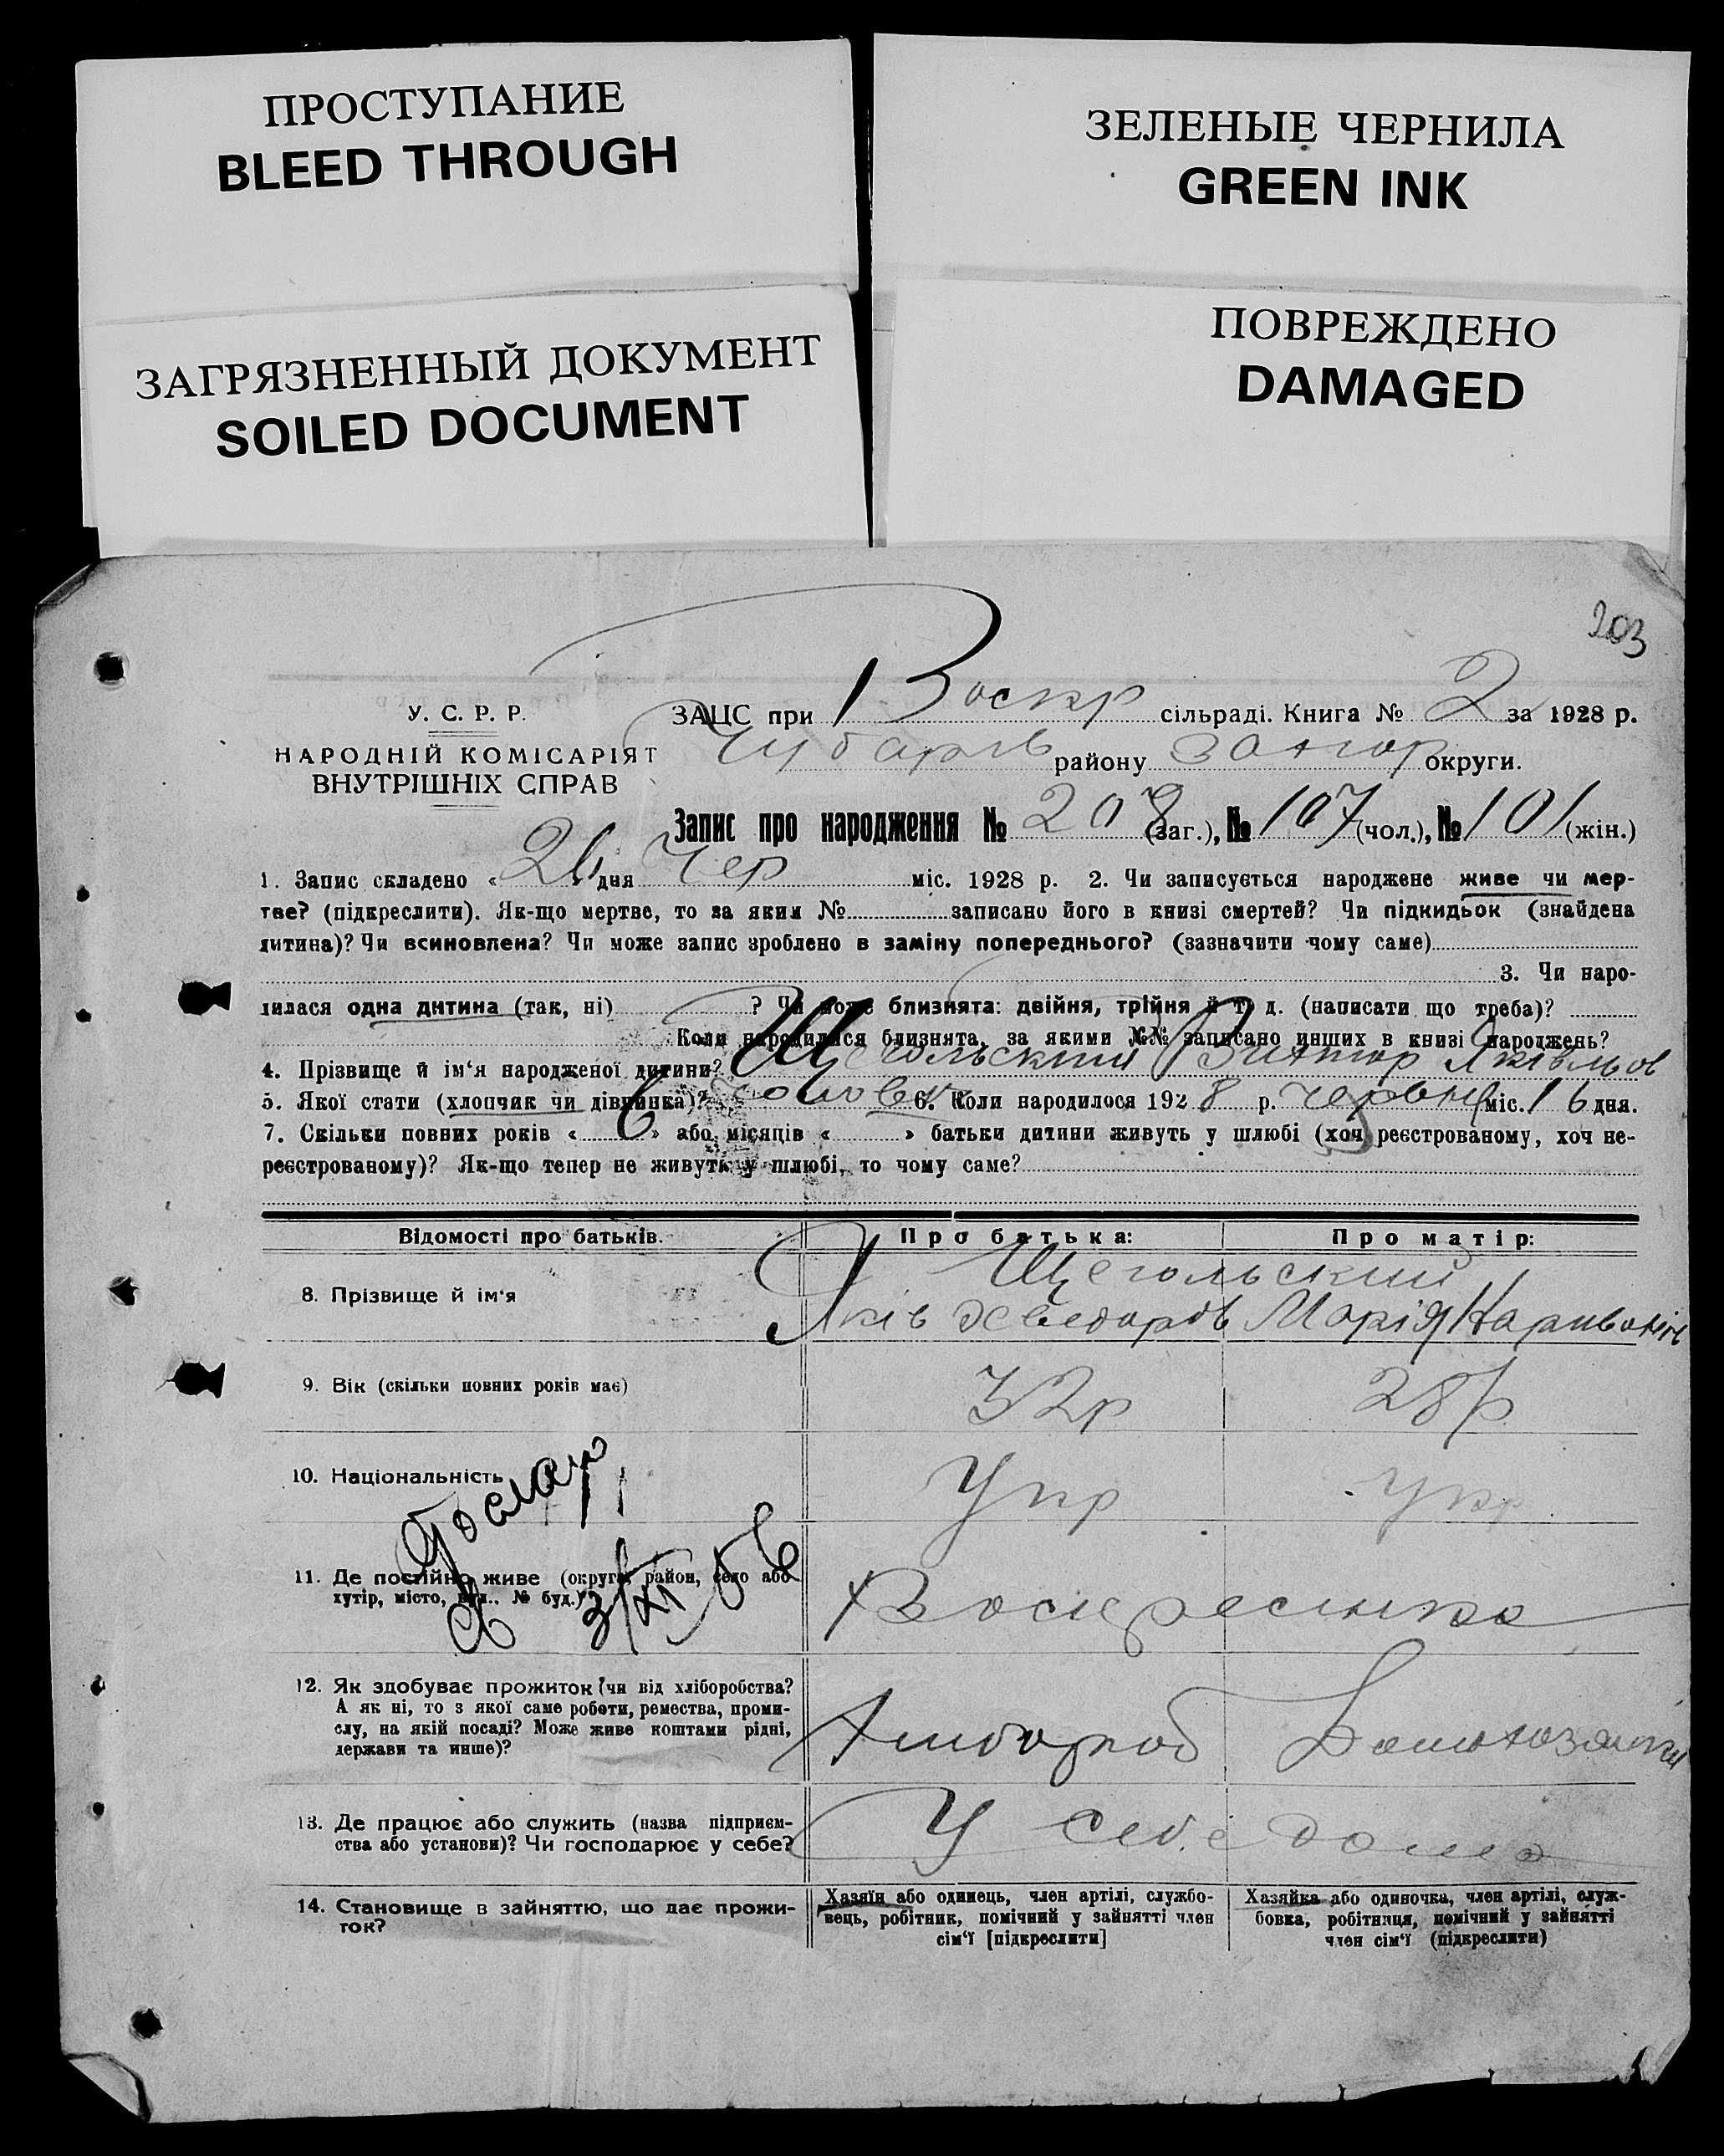 ПРОСТУПАНИЕ
BLEED THROUGH
ЗЕЛЕНЫЕ ЧЕРНИЛА
GREEN INK
ЗАГРЯЗНЕННЫЙ ДОКУМЕНТ
SOILED DOCUMENT
ПОВРЕЖДЕНО
DAMAGED
203
У. С. Р. Р.
НАРОДНІЙ КОМІСАРІЯТ
ВНУТРІШНІХ СПРАВ
ЗАЦС при Воскр сільраді. Книга № 2 за 1928 р.
Чубарів району Запор округи.
Запис про народження № 208 (заг.), № 107 (чол.), № 101 (жін.)
1. Запис складено « 26 » дня Чер міс. 1928 р. 2. Чи записується народжене живе чи мер-
тве? (підкреслити). Як-що мертве, то за яким № записано його в книзі смертей? Чи підкидьок (знайдена
дитина)? Чи всиновлена? Чи може запис зроблено в заміну попереднього? (зазначити чому саме)
3. Чи наро-
дилася одна дитина (так, ні) ? Чи може близнята: двійня, трійня й т. д. (написати що треба)?
Коли народилися близнята, за якими №№ записано инших в книзі народжень?
4. Прізвище й ім'я народженої дитини? Щегольский Виктор Яківльов
5. Якої стати (хлопчик чи дівчинка)? чоловік 6. Коли народилося 1928 р. червня міс. 16 дня.
7. Скільки повних років « 6 » або місяців « » батьки дитини живуть у шлюбі (хоч реєстрованому, хоч не-
реєстрованому)? Як-що тепер не живуть у шлюбі, то чому саме?
Відомості про батьків. Про батька: Про матір:
8. Прізвище й ім'я Щегольский
Яків Хведорів Марія
9. Вік (скільки повних років має) 32р 28р
10. Національність Укр Укр
11. Де постійно живе (округа, район, село або
хутір, місто, вул., № буд.)? Воскресенка
12. Як здобуває прожиток (чи від хліборобства?
А як ні, то з якої саме роботи, ремества, проми-
слу, на якій посаді? Може живе коштами рідні,
держави та инше)? Хлибороб Домохозяйки
13. Де працює або служить (назва підприєм-
ства або установи)? Чи господарює у себе? У себе дома
14. Становище в зайняттю, що дає прожи-
ток?
Хазяїн або одинець, член артілі, службо-
вець, робітник, помічний у зайнятті член
сім'ї [підкреслити]
Хазяйка або одиночка, член артілі, служ-
бовка, робітниця, помічний у зайнятті
член сім'ї (підкреслити)